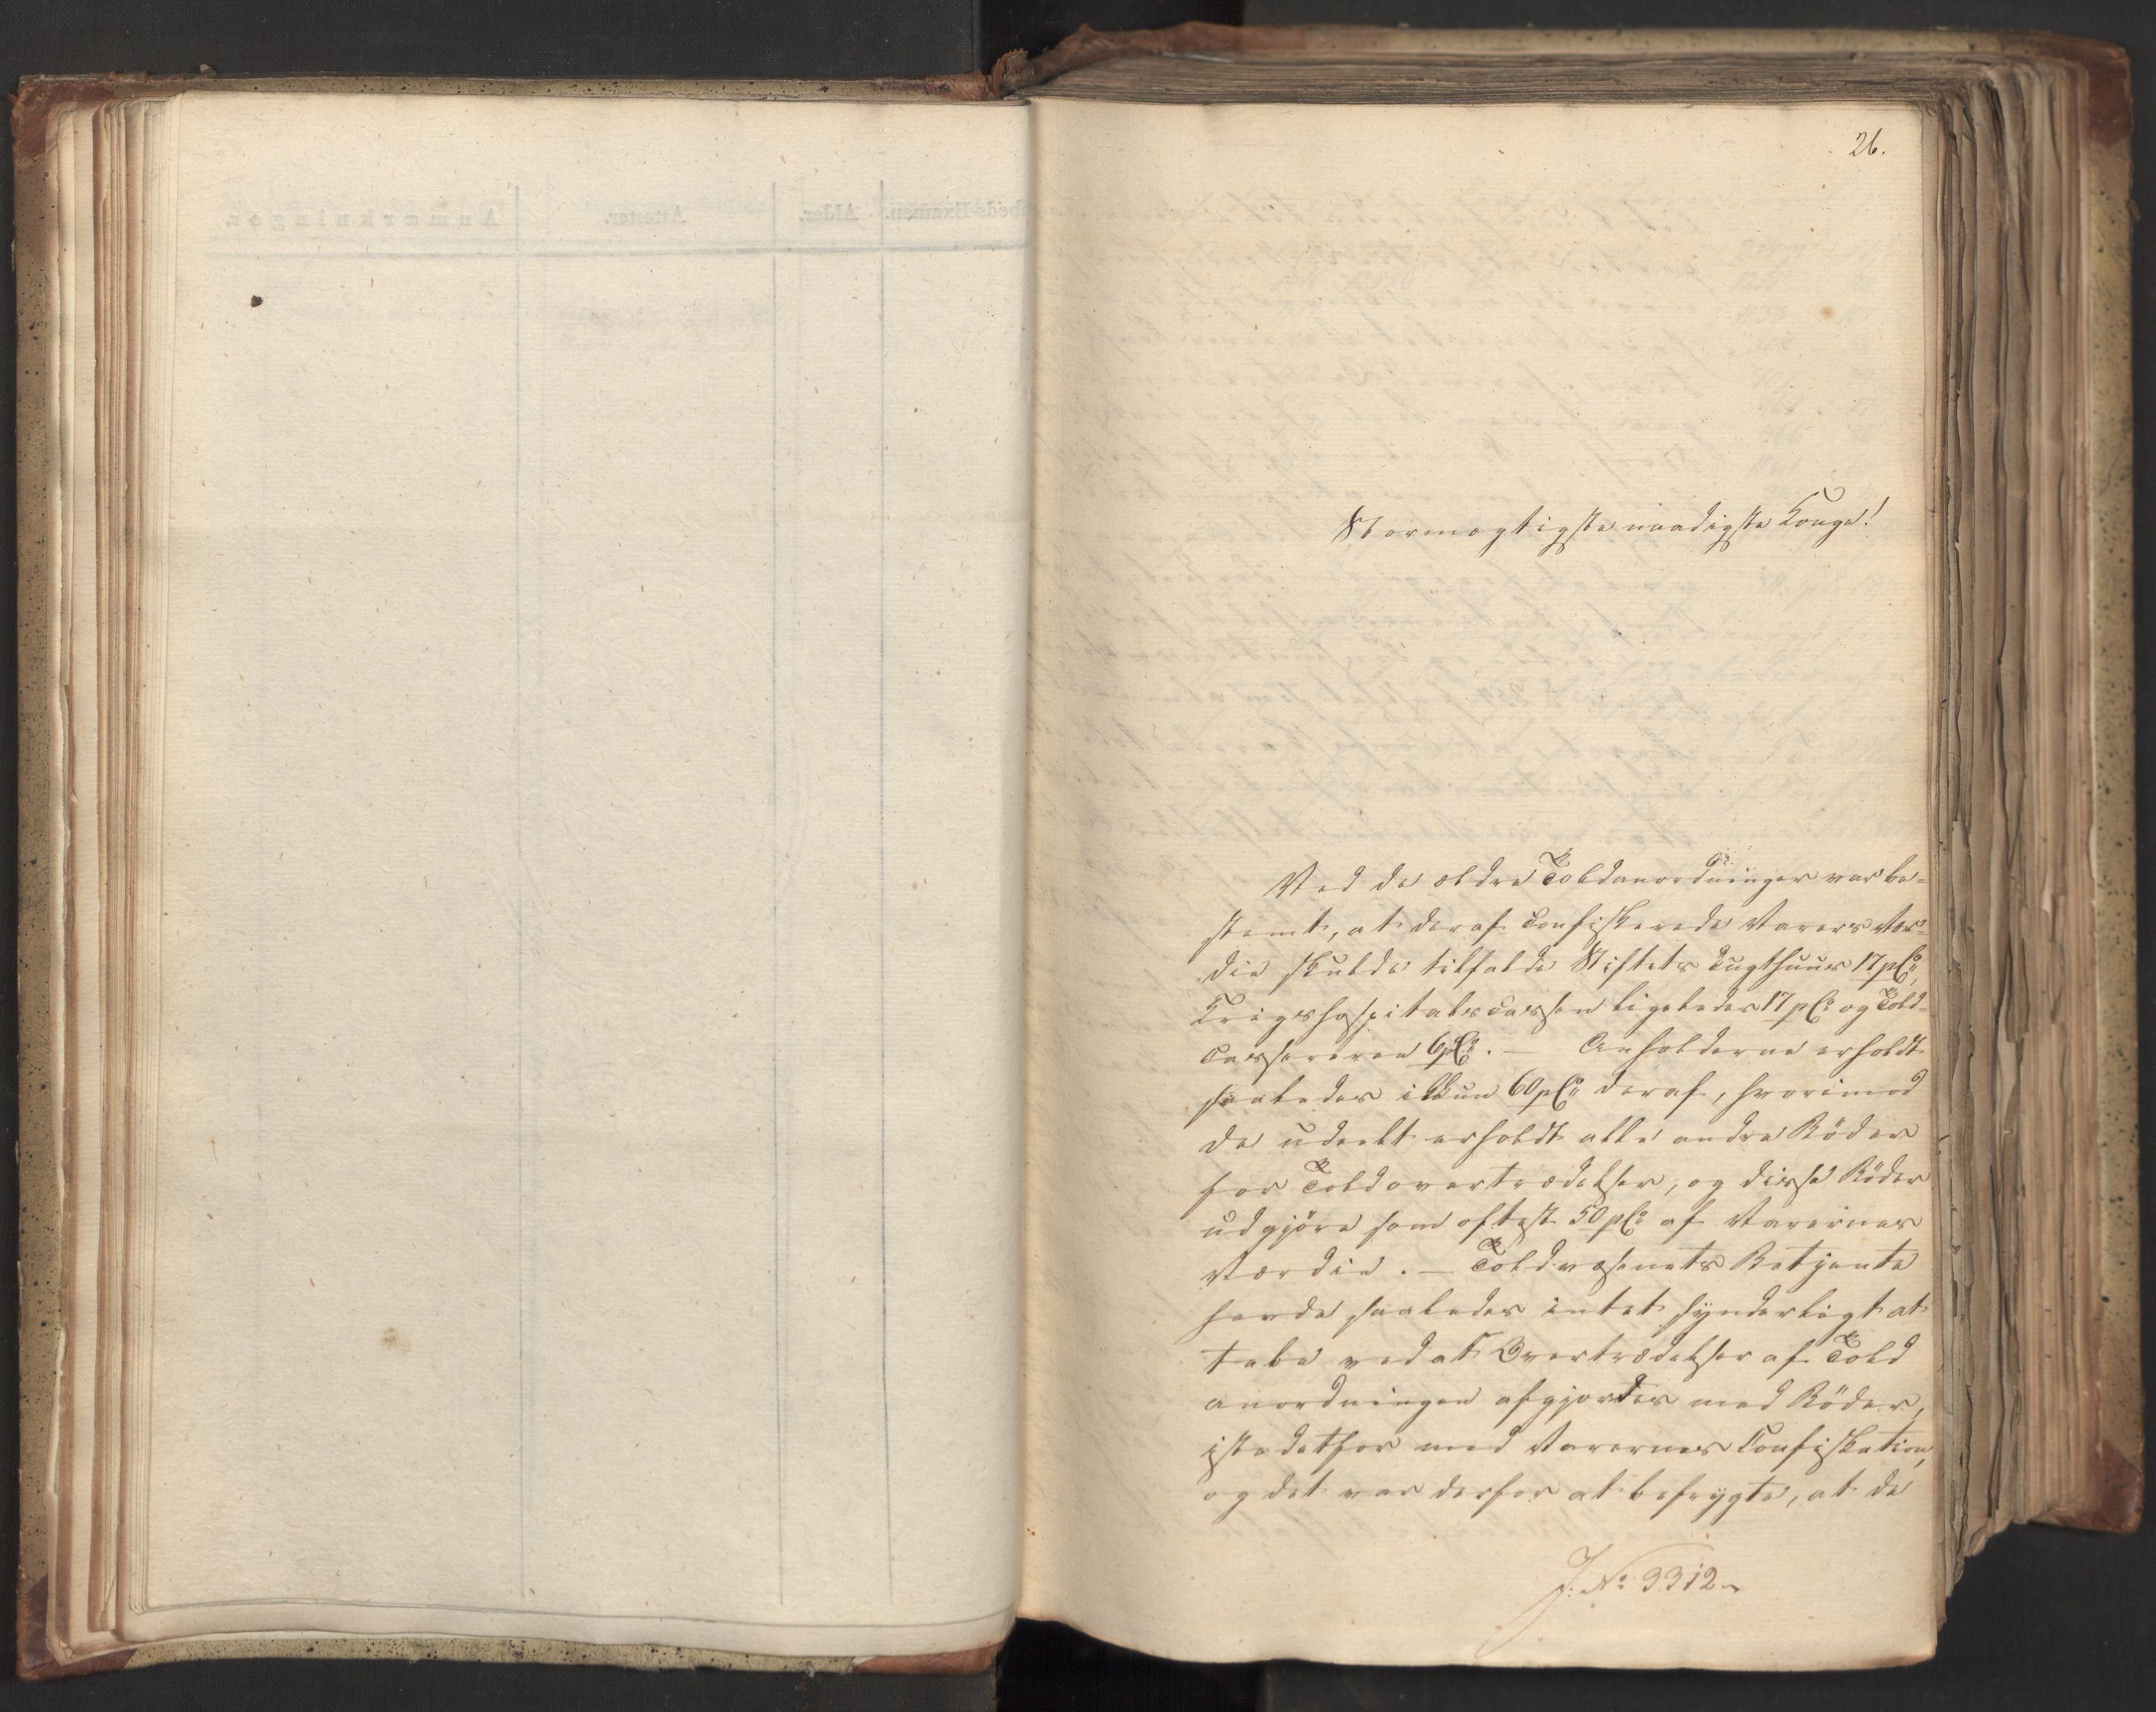 26.
Stormægtigste naadigste Konge!
Ved de ældre Toldanordninger var be-
stemt, at deraf confiskerede Varers Vær-
die skulde tilfalde Stiftets Tugthuus 17 pC.,
Krigshospitalscassen ligeledes 17 pC. og Told-
cassereren 6 pC. — Anholderne erholdt
saaledes ikkun 60 pC. deraf, hvorimod
de udeelt erholdt alle andre Böder
for Toldovertrædelser, og disse Böder
udgjöre som oftest 50 pC. af Varernes
Værdie. — Toldvæsenets Betjente
havde saaledes intet synderligt at
tabe ved at Overtrædelser af Told
anordningen afgjordes med Böder,
istedetfor med Varernes Confiskation,
og det var derfor at befrygte, at de
J. No 3312
Anmærkninger.
Attester.
Alder.
Examen.